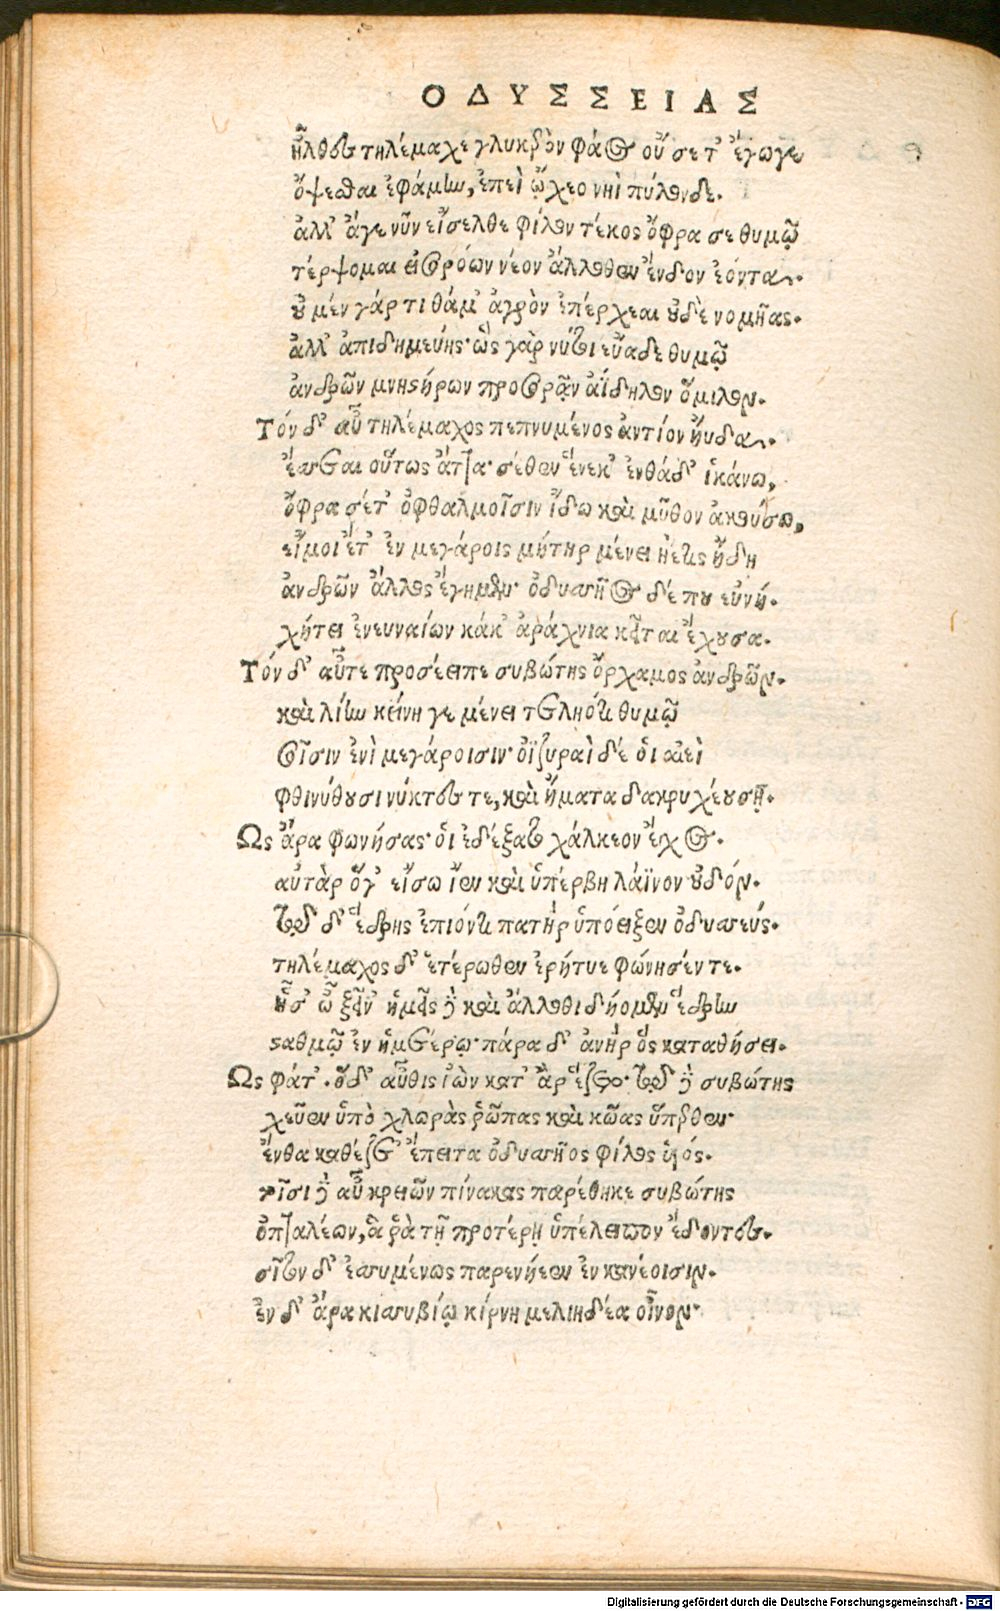 ΟΔΥΣΣΕΙΑΣ
ἦλθες τηλέμαχε γλυκερὸν φάος οὔ σε τ' ἔγωγε
ὄψεσθαι ἐφάμην, ἐπεὶ ᾤχεο νηὶ πύλονδε.
ἀλλ' ἄγε νῦν εἴσελθε φίλον τέκος ὄφρα σε θυμῷ
τέρψομαι εἰσορόων νέον ἄλλοθεν ἔνδον ἐόντα.
οὐ μέν γάρ τι θάμ' ἀγρὸν ἐπέρχεαι οὐδὲ νομῆας.
ἀλλ' ἀπιδημεύῃς· ὣς γὰρ νύ τοι εὔαδε θυμῷ
ἀνδρῶν μνηστήρων προσορᾷν ἀΐδηλον ὅμιλον.
Τόν δ' αὖ τηλέμαχος πεπνυμένος ἀντίον ηὔδα.
ἔσσεται οὕτως ἄττα· σέθεν ἕνεκ' ἐνθάδ' ἱκάνω,
ὄφρα σέ τ' ὀφθαλμοῖσιν ἴδω καὶ μῦθον ἀκούσω,
εἴ μοι ἔτ' ἐν μεγάροις μήτηρ μένει ἠέ τις ἤδη
ἀνδρῶν ἄλλος ἔγημεν· ὀδυσσῆος δέ που εὐνή.
χήτει ἐνευναίων κάκ' ἀράχνια κεῖται ἔχουσα.
Τόν δ' αὖτε προσέειπε συβώτης ὄρχαμος ἀνδρῶν.
καὶ λίην κείνη γε μένει τετληότι θυμῷ
σοῖσιν ἐνὶ μεγάροισιν· ὀϊζυραὶ δέ οἱ αἰεὶ
φθινύθουσι νύκτες τε, καὶ ἤματα δακρυχέουσῃ.
Ως ἄρα φωνήσας· οἱ ἐδέξατο χάλκεον ἔγχος.
αὐτὰρ ὅγ' εἴσω ἴεν καὶ ὑπέρβη λάϊνον οὐδόν.
τῷ δ' ἕδρης ἐπιόντι πατὴρ ὑπόειξεν ὀδυσσεύς.
τηλέμαχος δ' ἑτέρωθεν ἐρήτυε φώνησέν τε.
ἧσ' ὦ ξεῖν' ἡμεῖς δὲ καὶ ἄλλοθι δήομεν ἕδρην
σταθμῷ ἐν ἡμετέρῳ· πάρα δ' ἀνὴρ ὃς καταθήσει.
Ως φάτ'. ὁ δ' αὖθις ἰὼν κατ' ἂρ ἕζετο· τῷ δὲ συβώτης
χεῦεν ὑπὸ χλωρὰς ῥῶπας καὶ κῶας ὕπερθεν·
ἔνθα καθέζετ' ἔπειτα ὀδυσσῆος φίλος υἱός.
τοῖσι δὲ αὖ κρειῶν πίνακας παρέθηκε συβώτης
ὀπταλέων, ἃ ῥὰ τῇ προτέρῃ ὑπέλειπον ἔδοντες.
σῖτον δ' ἐσσυμένως παρενήεεν ἐν κανέοισιν.
ἐν δ' ἄρα κισσυβίῳ κίρνη μελιηδέα οἶνον·
Digitalisierung gefördert durch die Deutsche Forschungsgemeinschaft - DFG